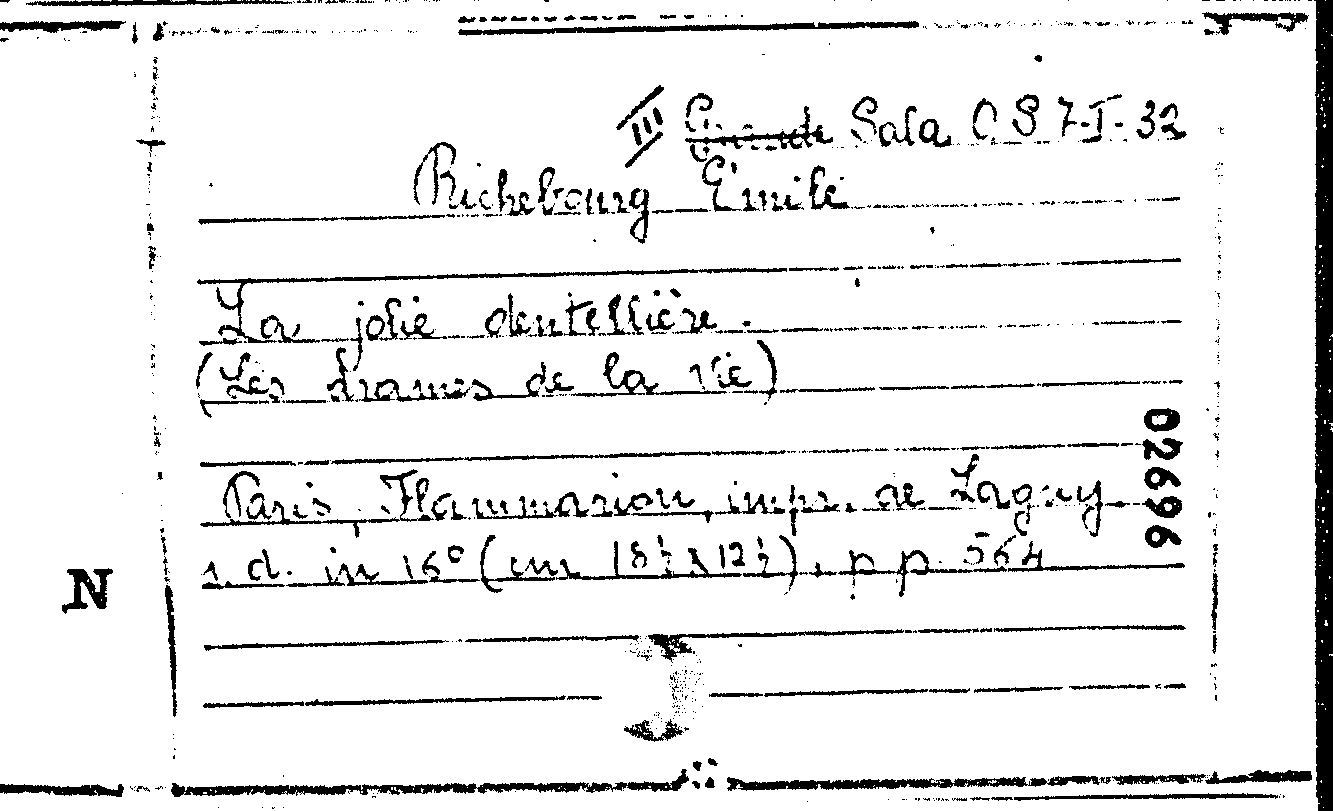 III Sala C S 7-I-32
Richebourg Émile
La jolie dentellière.
(Les drames de la vie)
Paris, Flammarion, impr. de Lagny
s. d. in 16° (cm 18½ x 12½), pp. 564
02696
N